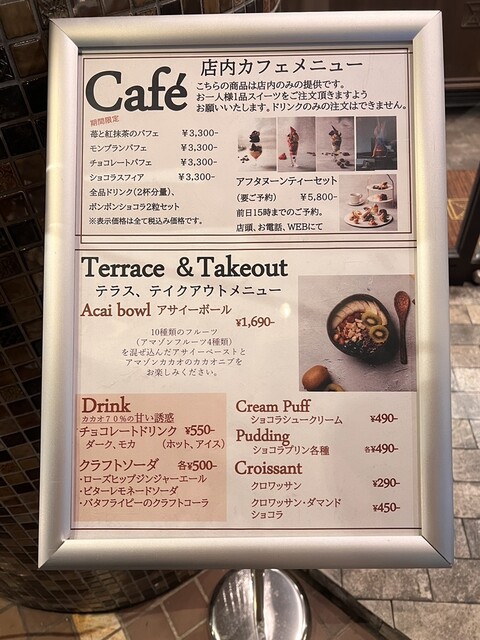 Café
店内カフェメニュー
こちらの商品は店内のみの提供です。
お一人様1品スイーツをご注文頂きますよう
お願いいたします。ドリンクのみの注文はできません。
期間限定
苺と紅抹茶のパフェ ¥3,300-
モンブランパフェ ¥3,300-
チョコレートパフェ ¥3,300-
ショコラスフィア ¥3,300-
全品ドリンク(2杯分量)、
ボンボンショコラ2粒セット
※表示価格は全て税込み価格です。
アフタヌーンティーセット
(要ご予約) ¥5,800-
前日15時までのご予約。
店頭、お電話、WEBにて
Terrace & Takeout
テラス、テイクアウトメニュー
Acai bowl アサイーボール
¥1,690-
10種類のフルーツ
(アマゾンフルーツ4種類)
を混ぜ込んだアサイーペーストと
アマゾンカカオのカカオニブを
お楽しみください。
Drink
カカオ70%の甘い誘惑
チョコレートドリンク ¥550-
ダーク、モカ (ホット、アイス)
クラフトソーダ 各¥500-
・ローズヒップジンジャーエール
・ビターレモネードソーダ
・バタフライピーのクラフトコーラ
Cream Puff
ショコラシュークリーム ¥490-
Pudding
ショコラプリン各種 各¥490-
Croissant
クロワッサン ¥290-
クロワッサン・ダマンド
ショコラ ¥450-